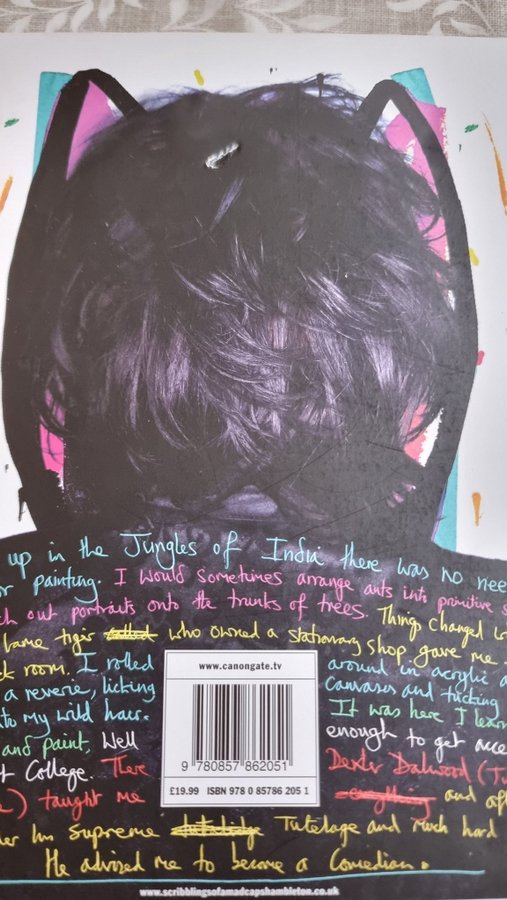 up in the Jungles of India there was no nee
r painting. I would sometimes arrange ants into primitive s
ch out portraits onto the trunks of trees. Things changed
lame tiger called who owned a stationary shop gave me
ck room. I rolled around in acrylic a
a reverie, licking canvases and tucking
to my wild hair. It was here I learn
and paint, well enough to get acce
t College. There Dexter Dalwood (Tu
) taught me everything and aft
der his supreme Tutelage and much hard
He advised me to become a Comedian.
www.canongate.tv
9 780857 862051
£19.99 ISBN 978 0 85786 205 1
www.scribblingsofamadcapshambleton.co.uk